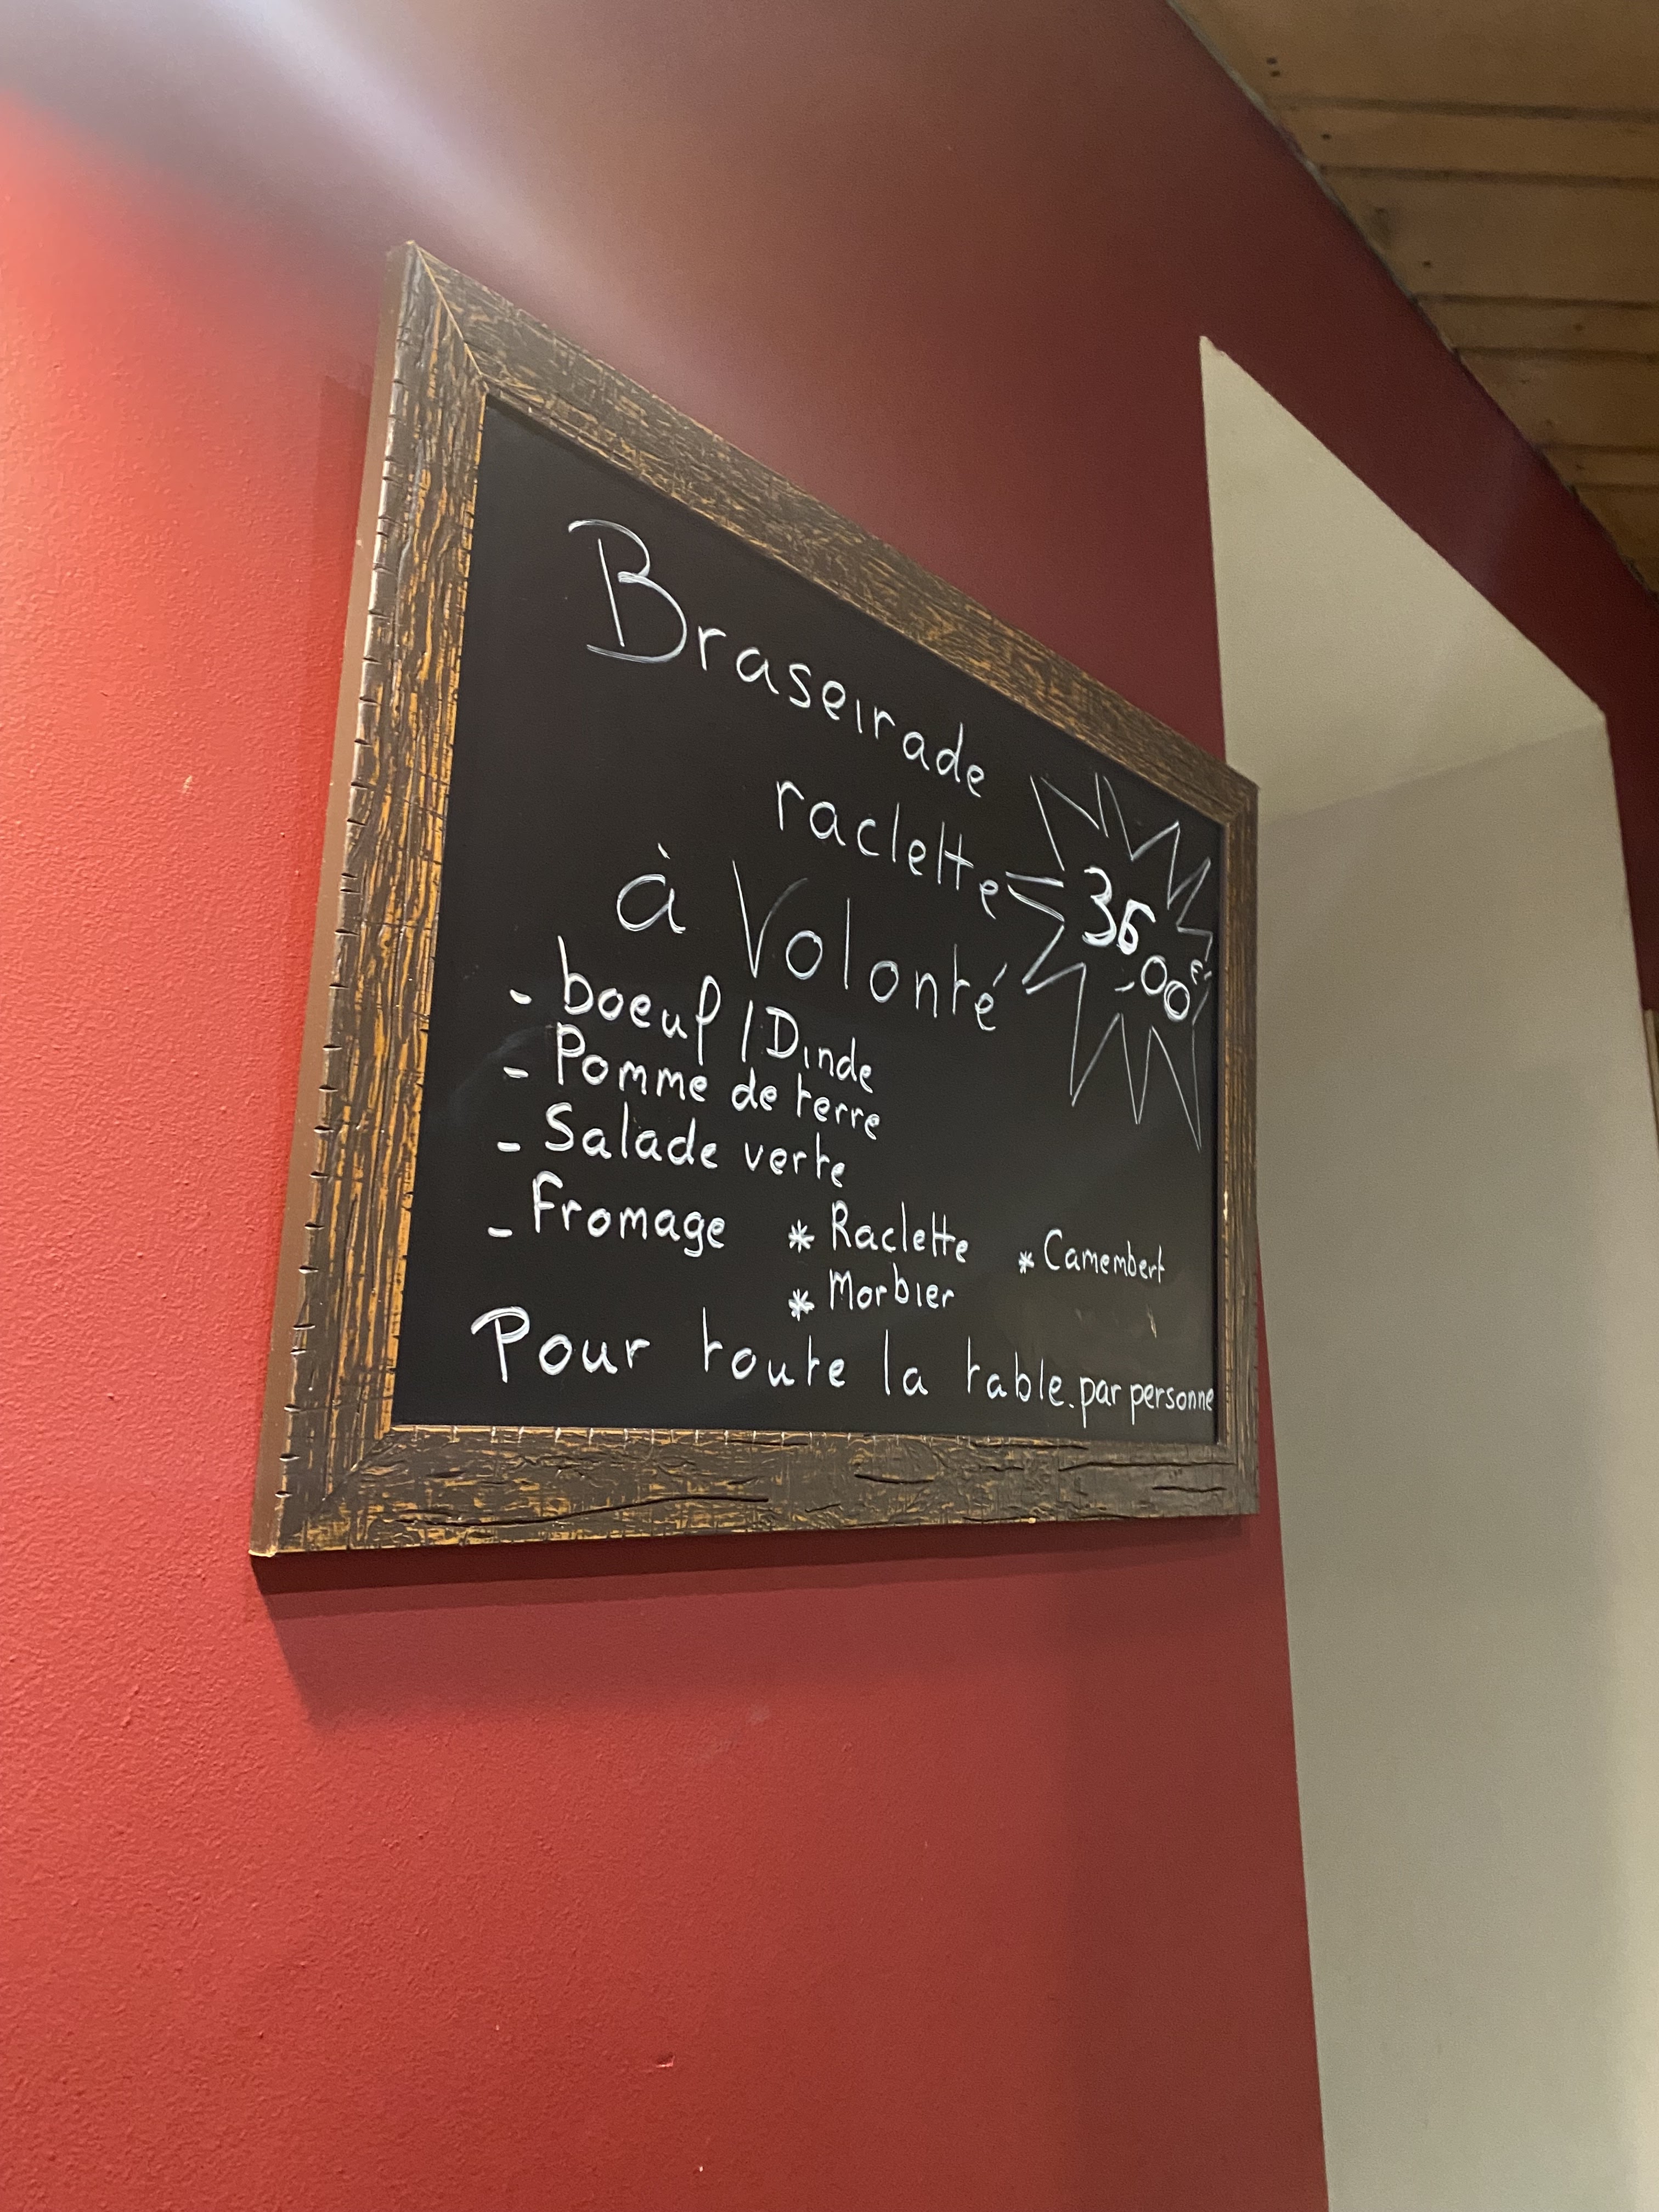 Braseirade
raclette
à Volonté
36,00€
- boeuf / Dinde
- Pomme de terre
- Salade verte
- Fromage * Raclette * Camembert
* Morbier
Pour toute la table. par personne